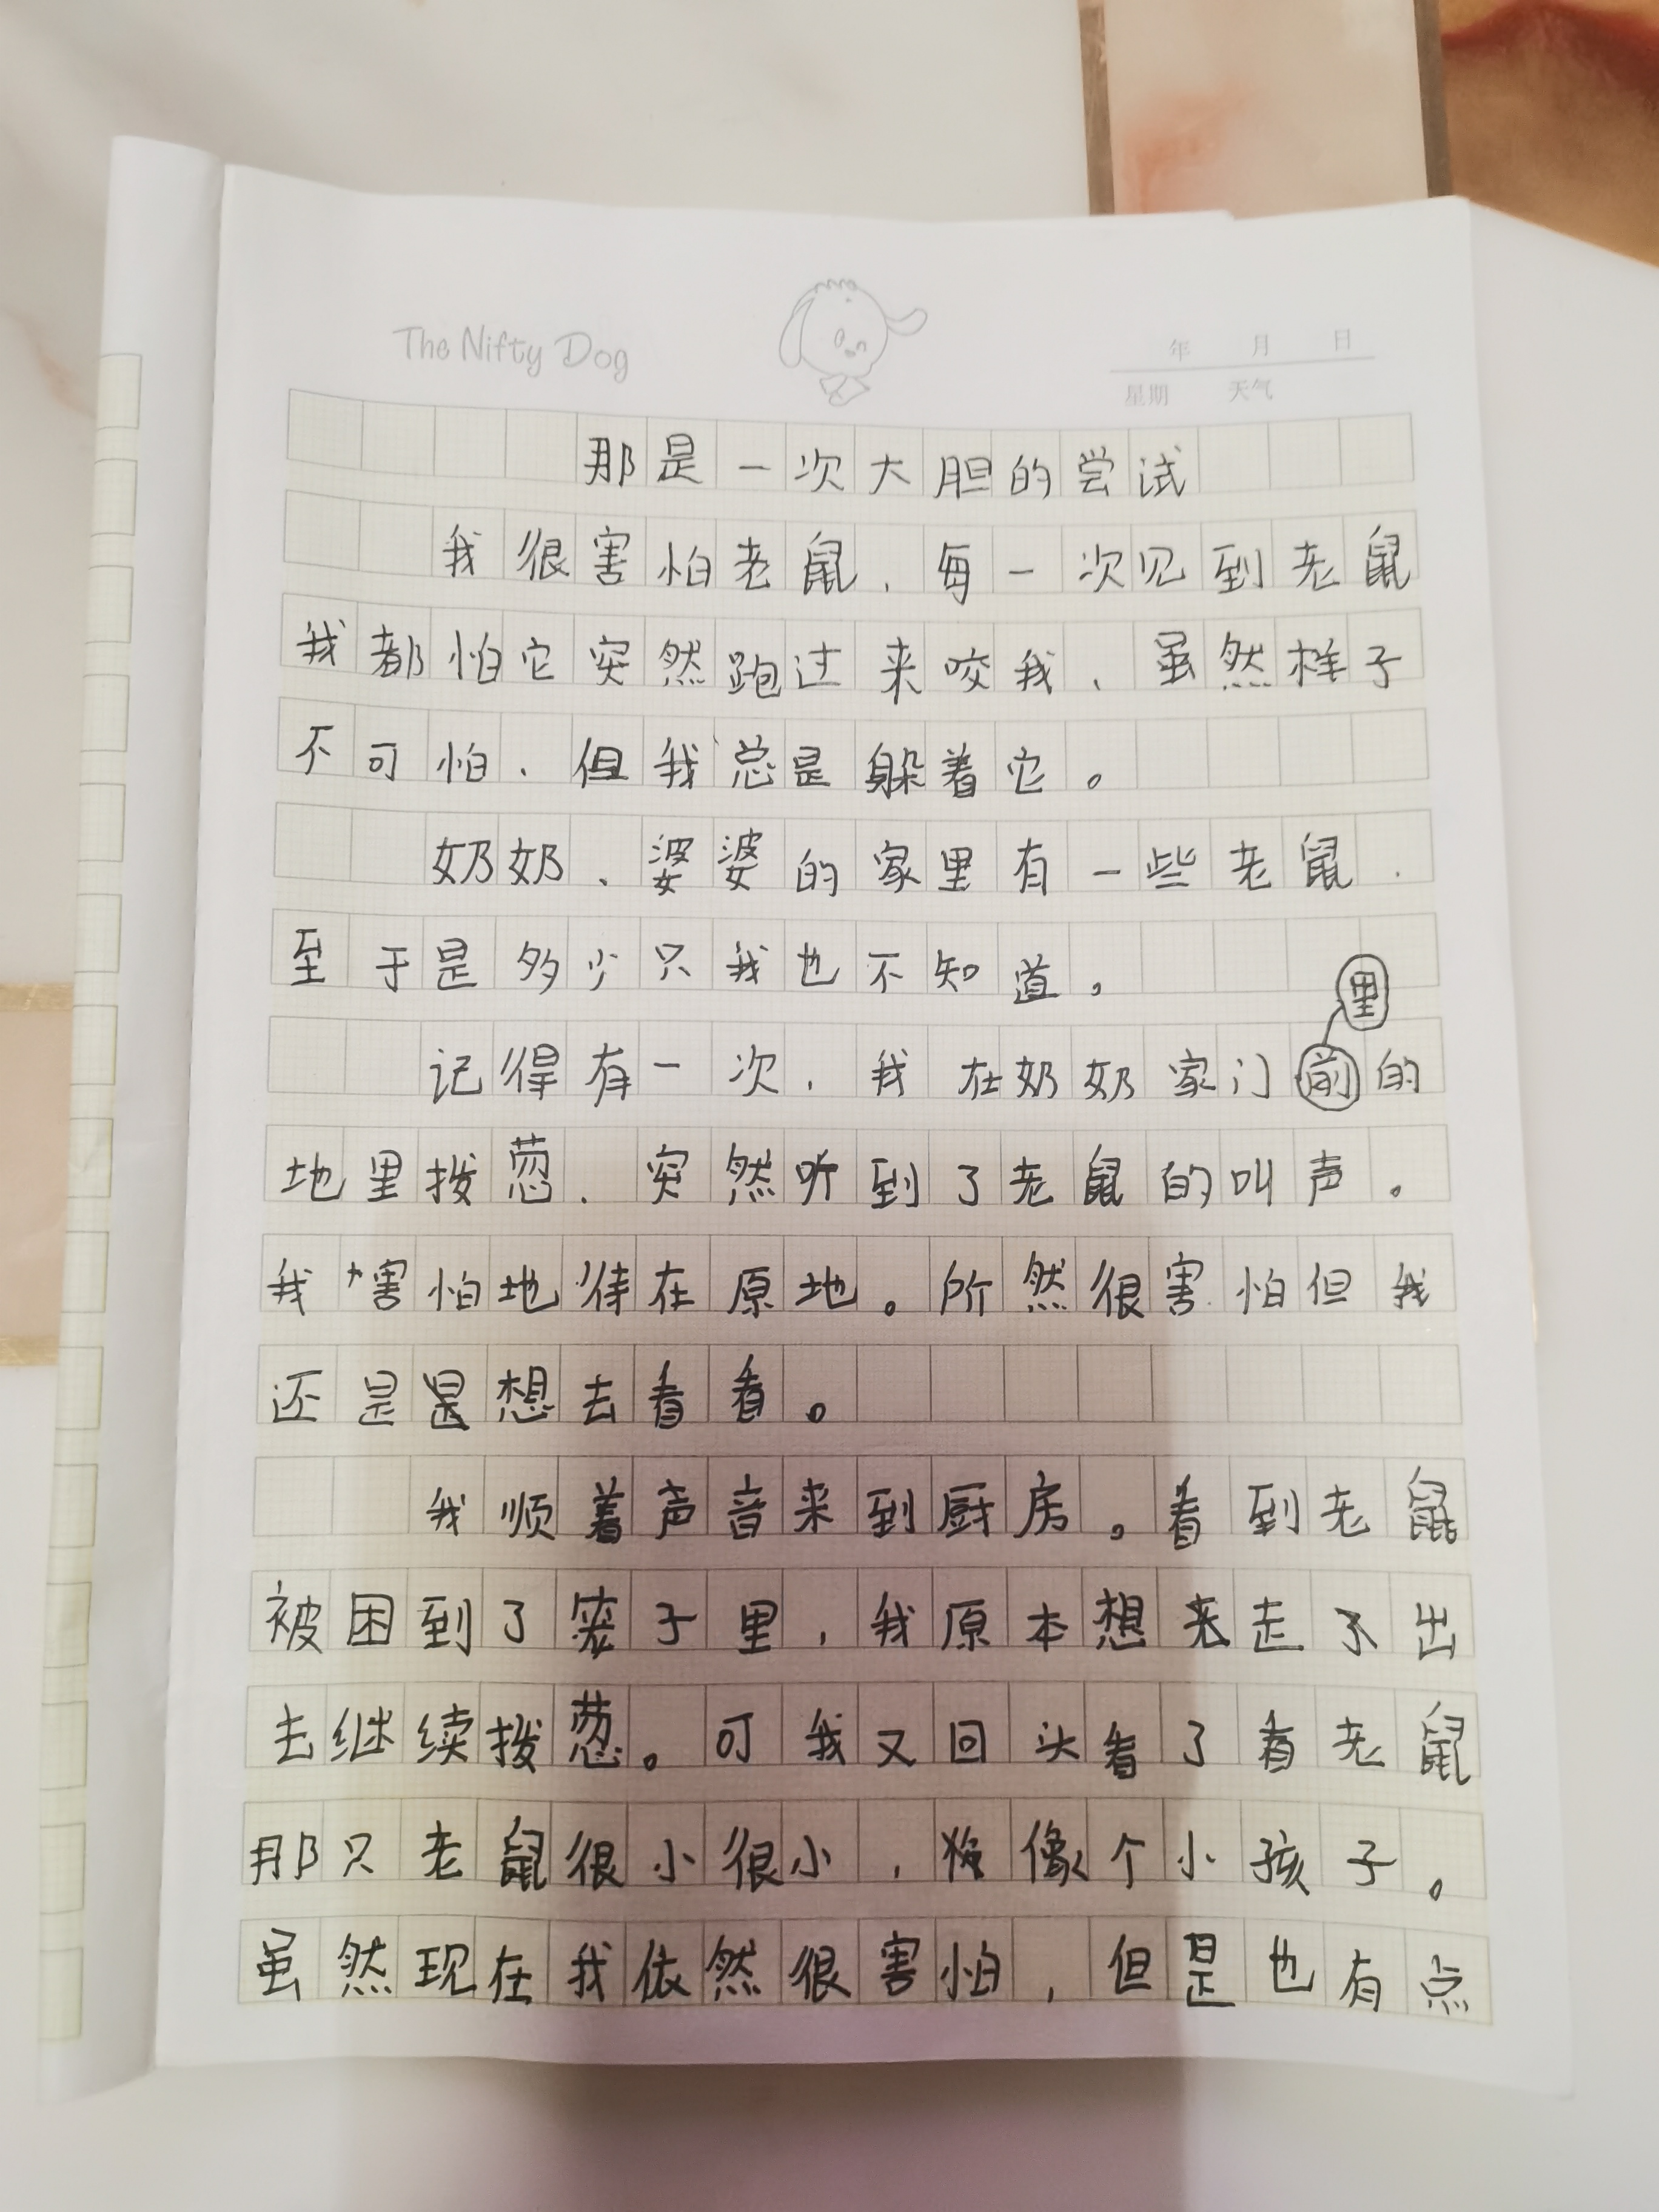 The Nifty Dog
年 月 日
星期 天气
那是一次大胆的尝试
我很害怕老鼠，每一次见到老鼠
我都怕它突然跑过来咬我，虽然样子
不可怕，但我总是躲着它。
奶奶、婆婆的家里有一些老鼠，
至于是多少只我也不知道。
里
记得有一次，我在奶奶家门前的
地里拨葱，突然听到了老鼠的叫声。
我害怕地待在原地。所然很害怕但我
还是是想去看看。
我顺着声音来到厨房。看到老鼠
被困到了笼子里，我原本想走了出
去继续拨葱。可我又回头看了看老鼠
那只老鼠很小很小，像个小孩子。
虽然现在我依然很害怕，但是也有点